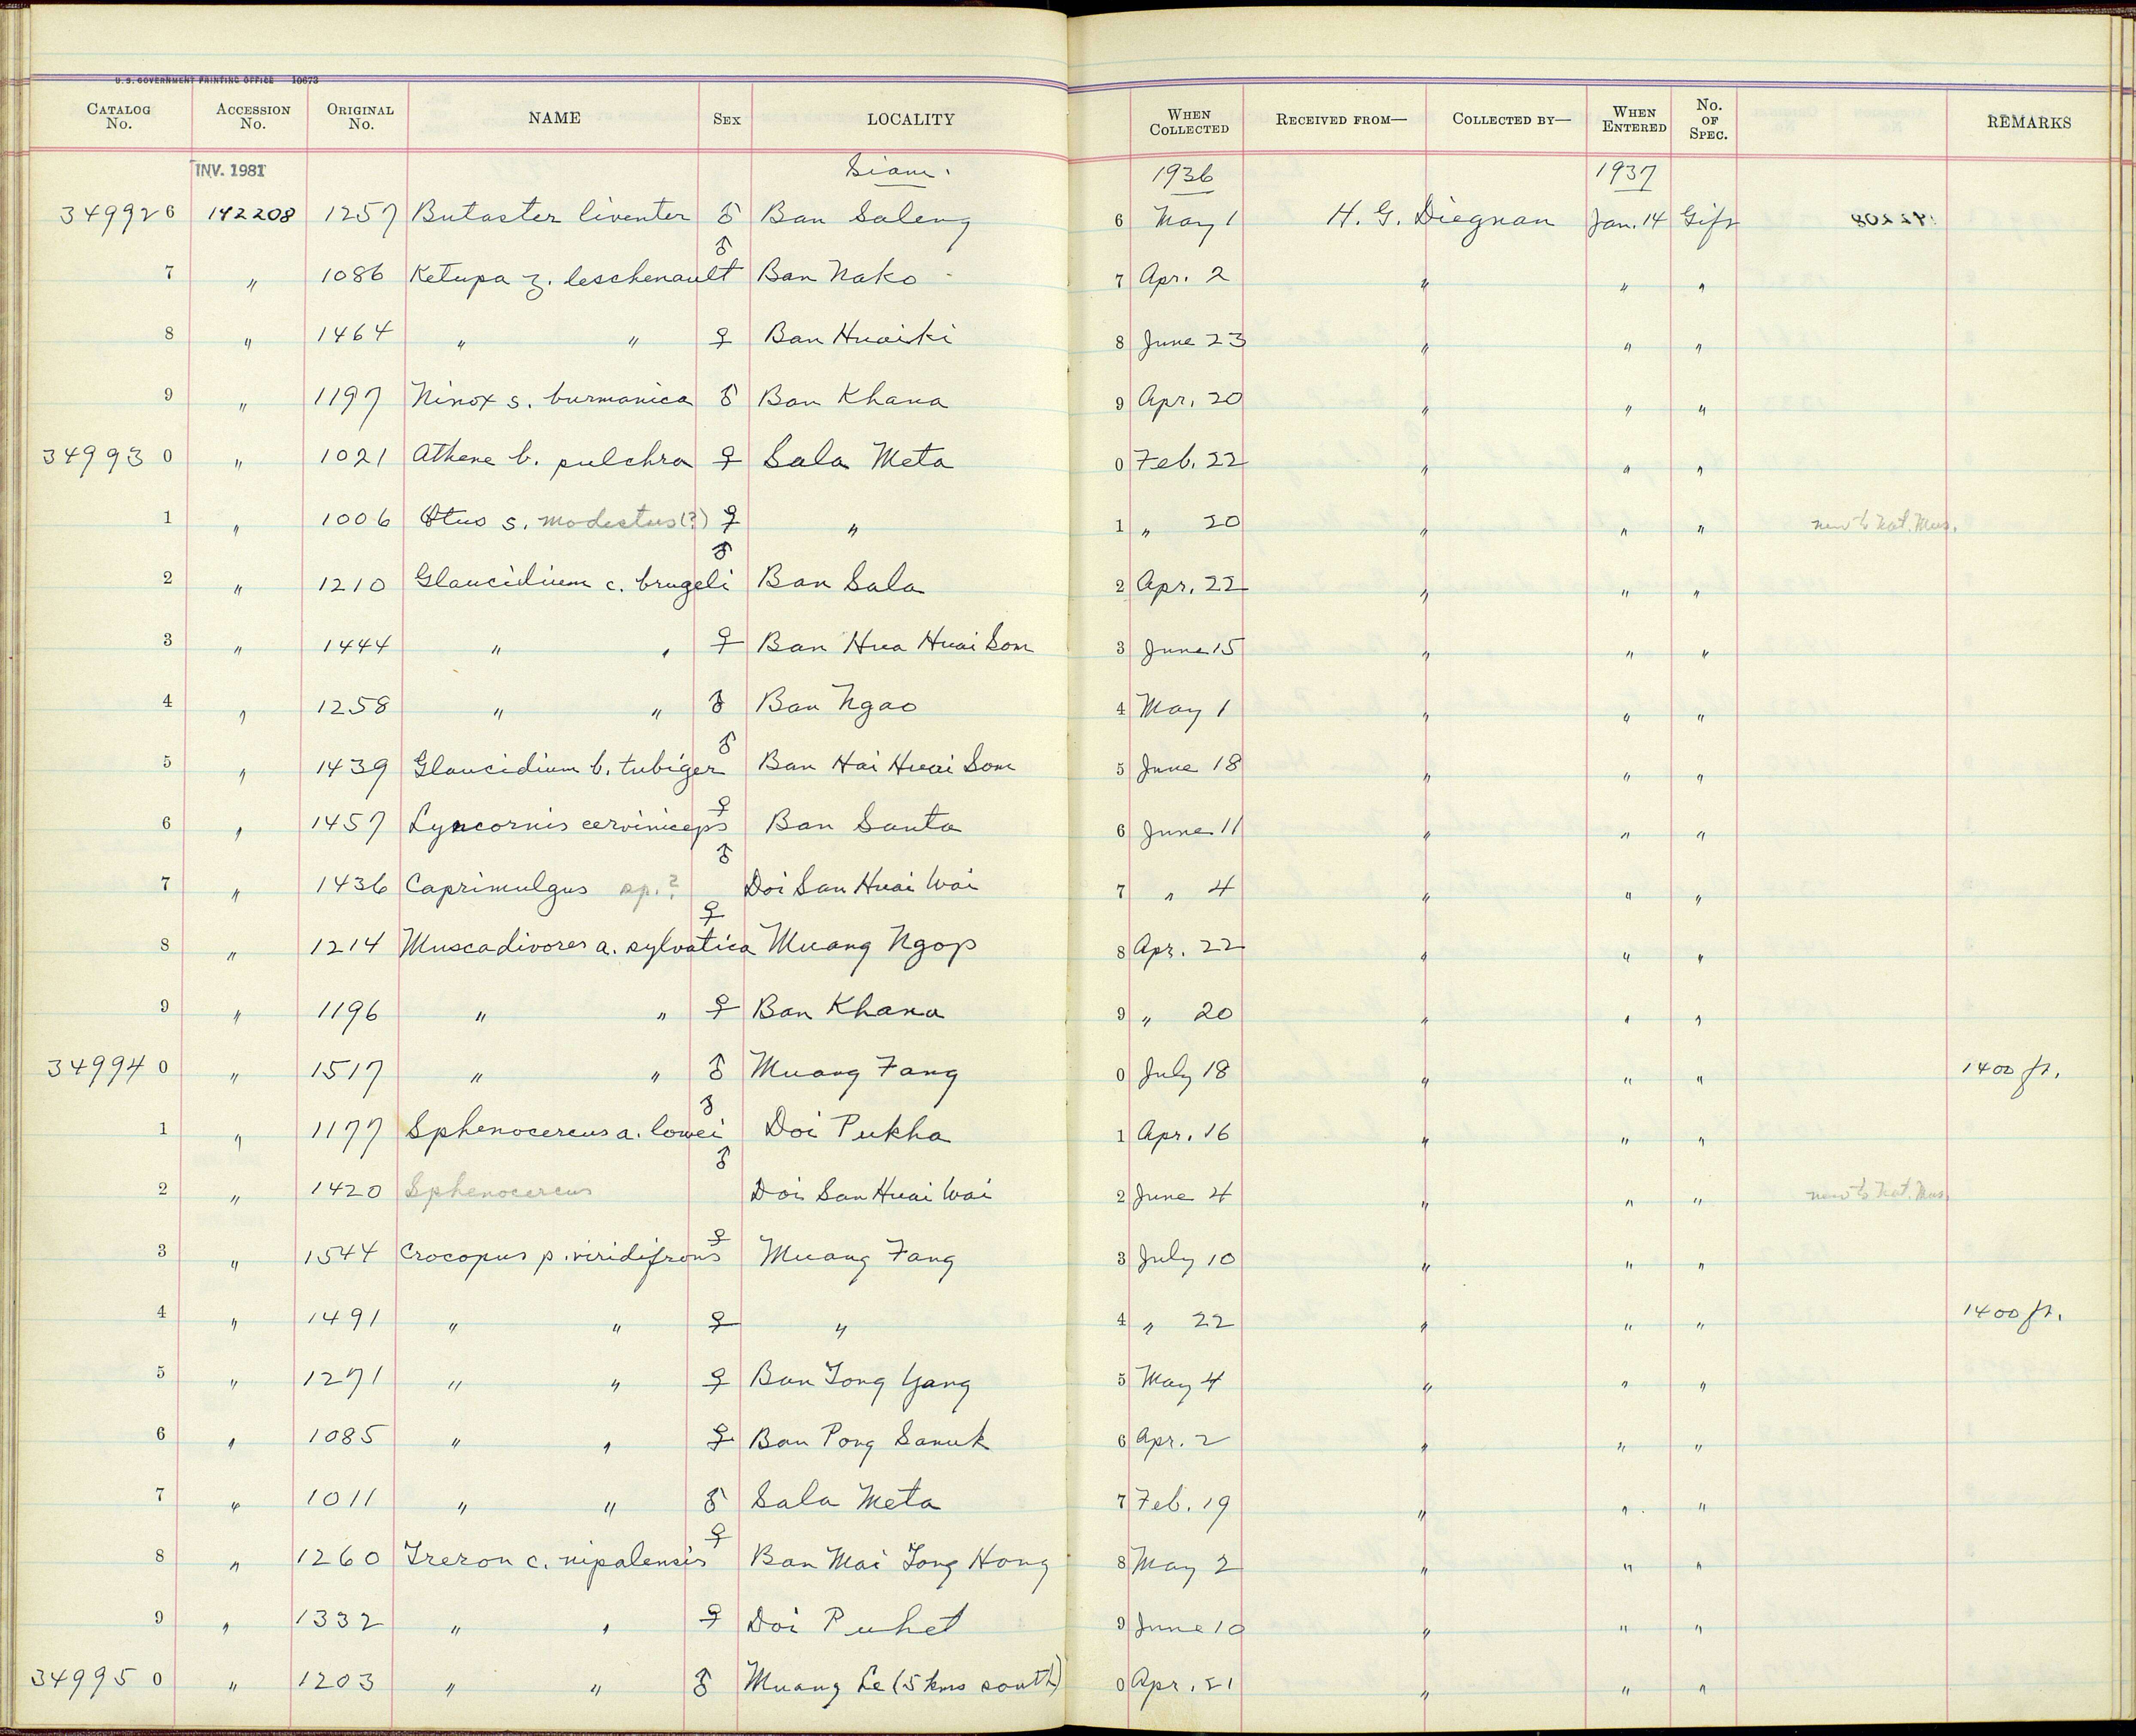 U. S. GOVERNMENT PRINTING OFFICE 10673
CATALOG No. ACCESSION No. ORIGINAL No. NAME SEX LOCALITY WHEN COLLECTED RECEIVED FROM— COLLECTED BY— WHEN ENTERED No. OF SPEC. REMARKS
INV. 1981 Siam. 1936 1937
349926 142208 1257 Butaster liventer ♂ Ban Saleng 6 May 1 H. G. Diegnan Jan. 14 Gift 142208
7 " 1086 Ketupa z. leschenault ♂ Ban Nako 7 Apr. 2 " " "
8 " 1464 " " ♀ Ban Huaiki 8 June 23 " " "
9 " 1197 Ninox s. burmanica ♂ Ban Khana 9 Apr. 20 " " "
349930 " 1021 Athene b. pulchra ♀ Sala Meta 0 Feb. 22 " " "
1 " 1006 Otus s. modestus(?) ♀ " 1 " 20 " " " new to Nat. Mus.
2 " 1210 Glaucidium c. brugeli ♂ Ban Sala 2 Apr. 22 " " "
3 " 1444 " " ♀ Ban Hua Huai Som 3 June 15 " " "
4 " 1258 " " ♂ Ban Ngao 4 May 1 " " "
5 " 1439 Glaucidium b. tubiger ♂ Ban Hai Huai Som 5 June 18 " " "
6 " 1457 Lyncornis cerviniceps ♀ Ban Santa 6 June 11 " " "
7 " 1436 Caprimulgus sp.? ♂ Doi San Huai Wai 7 " 4 " " "
8 " 1214 Muscadivores a. sylvatica ♀ Muang Ngop 8 Apr. 22 " " "
9 " 1196 " " ♀ Ban Khana 9 " 20 " " "
349940 " 1517 " " ♂ Muang Fang 0 July 18 " " " 1400 ft.
1 " 1177 Sphenocercus a. lowei ♂ Doi Pukha 1 Apr. 16 " " "
2 " 1420 Sphenocercus ♂ Doi San Huai Wai 2 June 4 " " " new to Nat. Mus.
3 " 1544 Crocopus p. viridifrons ♀ Muang Fang 3 July 10 " " "
4 " 1491 " " ♀ " 4 " 22 " " " 1400 ft.
5 " 1271 " " ♀ Ban Tong Yang 5 May 4 " " "
6 " 1085 " " ♀ Ban Pong Sanuk 6 Apr. 2 " " "
7 " 1011 " " ♂ Sala Meta 7 Feb. 19 " " "
8 " 1260 Treron c. nipalensis ♀ Ban Mai Tong Hong 8 May 2 " " "
9 " 1332 " " ♀ Doi Puhet 9 June 10 " " "
349950 " 1203 " " ♂ Muang Le (5 kms south) 0 Apr. 21 " " "